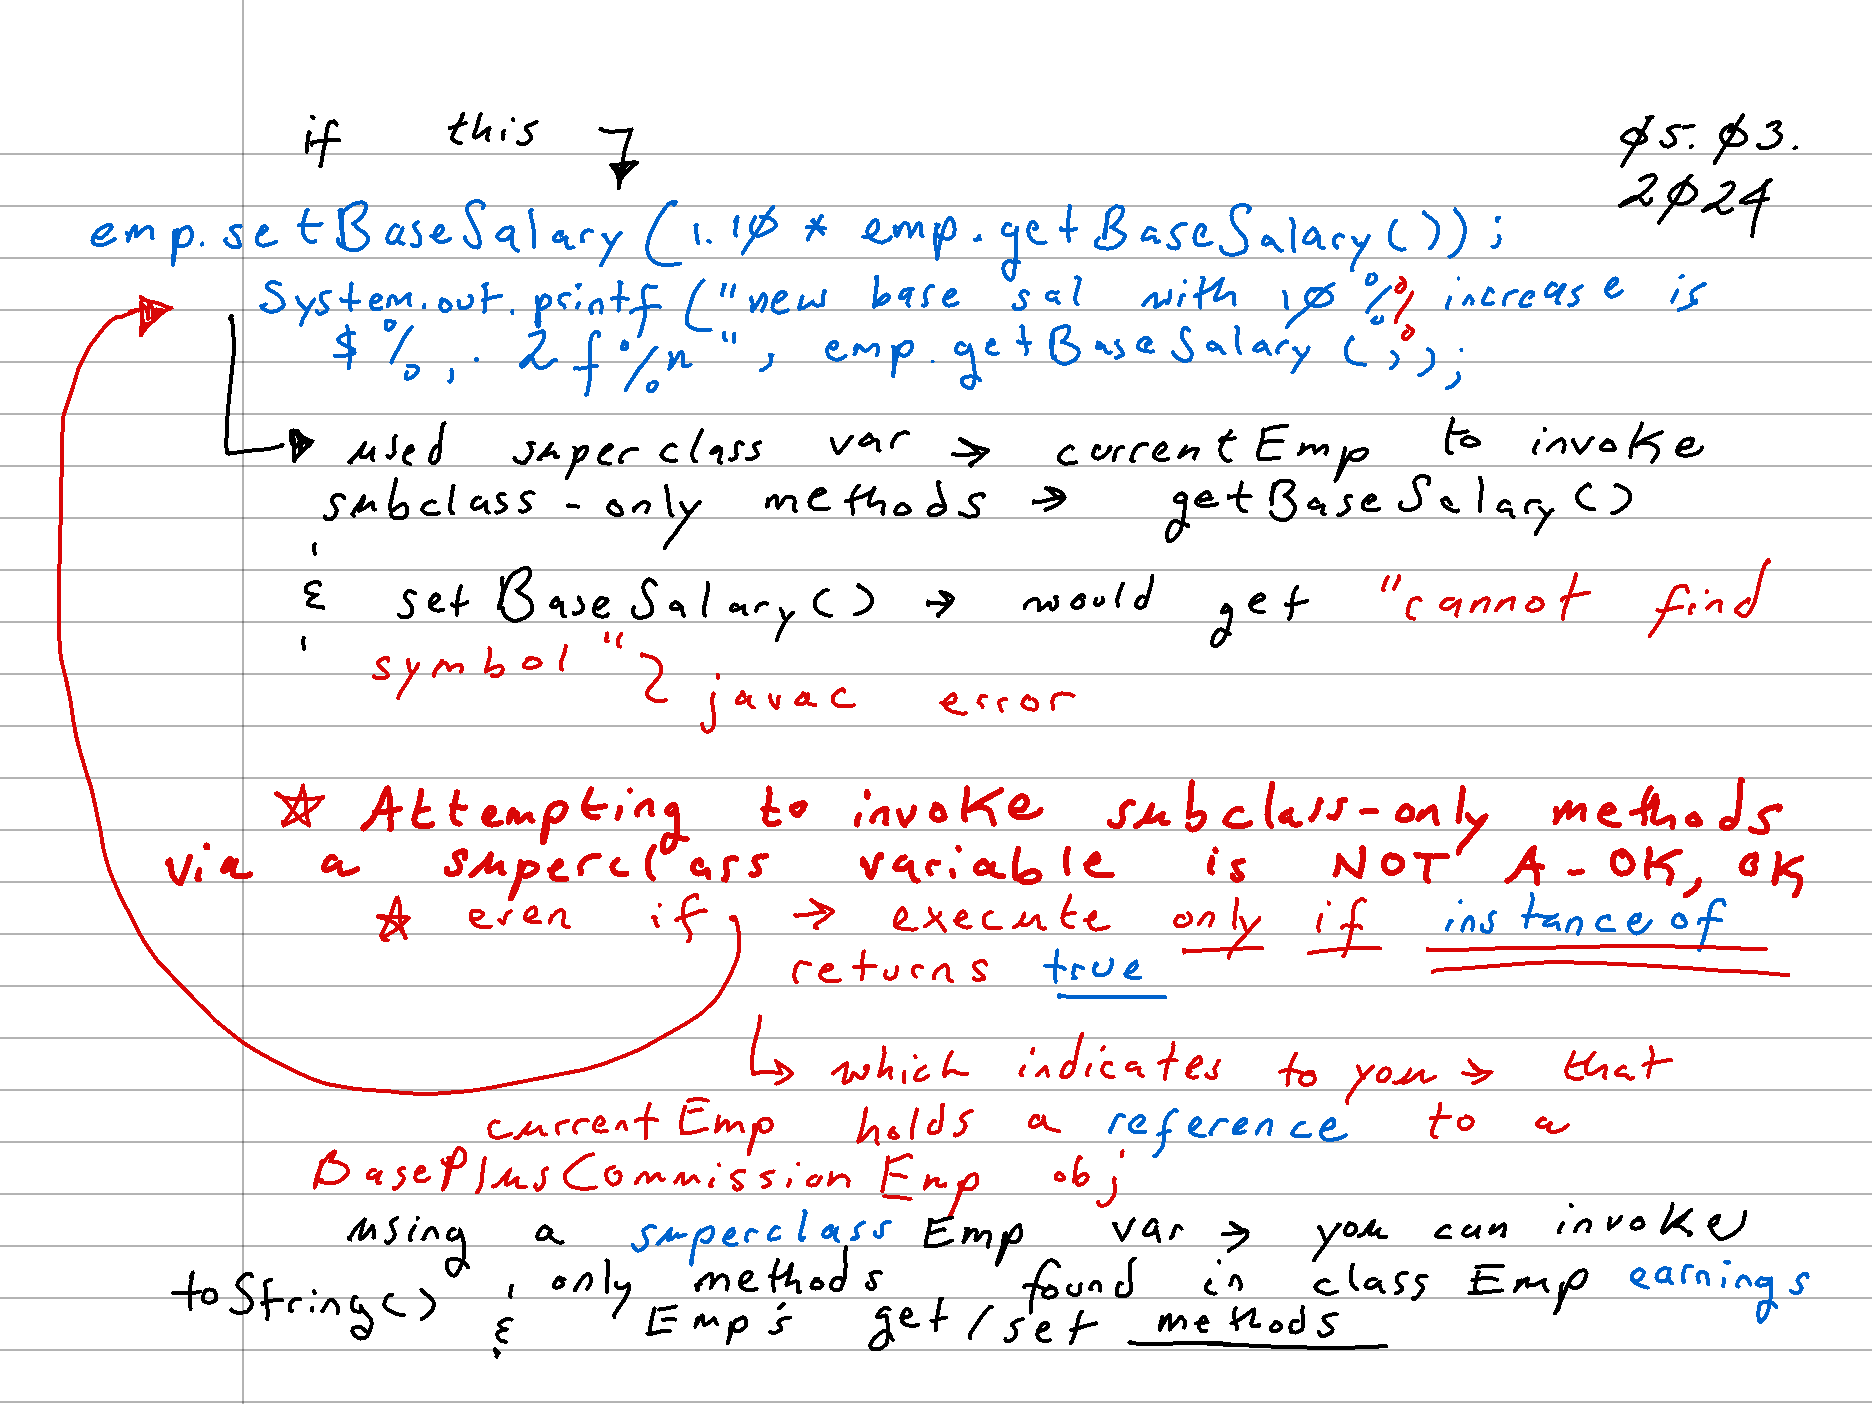 if this
ø5. ø3.
2ø24
emp.setBaseSalary(1.1ø * emp.getBaseSalary());
System.out.printf("new base sal with 1ø%% increase is
$%,.2f%n", emp.getBaseSalary());
used superclass var → currentEmp to invoke
subclass-only methods → getBaseSalary()
& setBaseSalary() → would get "cannot find
symbol" javac error
☆ Attempting to invoke subclass-only methods
via a superclass variable is NOT A-OK, OK
☆ even if → execute only if instanceof
returns true
↳ which indicates to you → that
currentEmp holds a reference to a
BasePlusCommissionEmp obj
using a superclass Emp var → you can invoke
only methods found in class Emp earnings
toString() & Emp's get/set methods